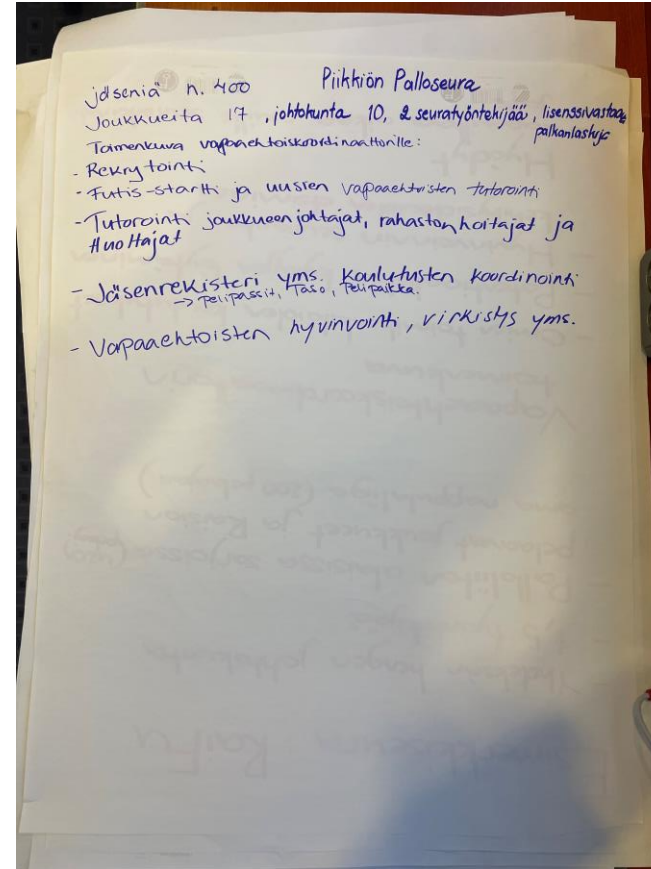 Piikkiön Palloseura
jäseniä n. 400
Joukkueita 17, johtokunta 10, 2 seuratyöntekijää, lisenssivastaava
palkanlaskija
Toimenkuva vapaaehtoiskoordinaattorille:
- Rekrytointi
- Futis-startti ja uusien vapaaehtoisten tutorointi
- Tutorointi joukkueenjohtajat, rahastonhoitajat ja
Huoltajat
- Jäsenrekisteri yms. Koulutusten koordinointi
-> Pelipassit, Taso, Pelipaikka.
- Vapaaehtoisten hyvinvointi, virkistys yms.